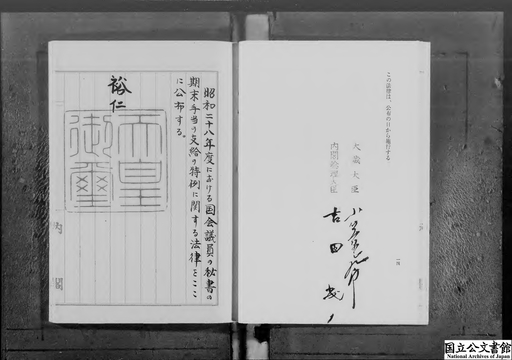 この法律は、公布の日から施行する
大蔵大臣
小笠原九郎
内閣総理大臣
吉田茂
昭和二十八年度における国会議員の秘書の
期末手当の支給の特例に関する法律をここ
に公布する。
裕仁
天皇
御璽
国立公文書館
National Archives of Japan